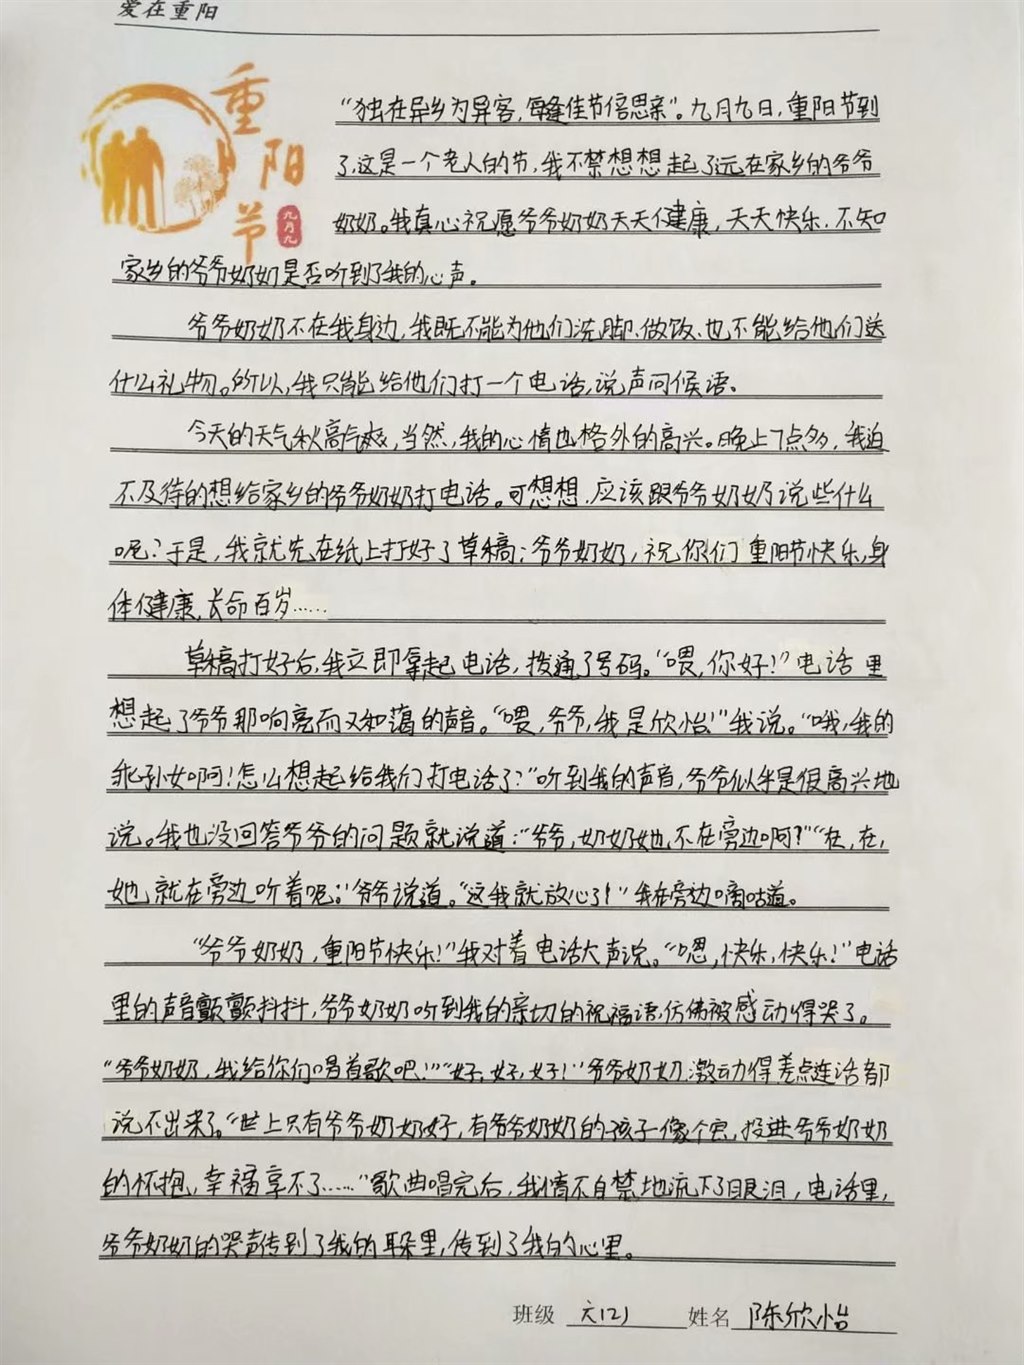 爱在重阳
重阳节
九月九
“独在异乡为异客，每逢佳节倍思亲”。九月九日，重阳节到
了，这是一个老人的节，我不禁想想起了远在家乡的爷爷
奶奶。我真心祝愿爷爷奶奶天天健康，天天快乐，不知
家乡的爷爷奶奶是否听到了我的心声。
爷爷奶奶不在我身边，我既不能为他们洗脚、做饭、也不能给他们送
什么礼物。所以，我只能给他们打一个电话，说声问候语。
今天的天气秋高气爽，当然，我的心情也格外的高兴。晚上7点多，我迫
不及待的想给家乡的爷爷奶奶打电话。可想想，应该跟爷爷奶奶说些什么
呢？于是，我就先在纸上打好了草稿：爷爷奶奶，祝你们重阳节快乐，身
体健康，长命百岁……
草稿打好后，我立即拿起电话，拨通了号码。“喂，你好！”电话里
想起了爷爷那响亮而又和蔼的声音。“喂，爷爷，我是欣怡！”我说。“哦，我的
乖孙女啊！怎么想起给我们打电话了？”听到我的声音，爷爷似乎是很高兴地
说。我也没回答爷爷的问题就说道：“爷爷，奶奶她不在旁边啊？”“在，在，
她就在旁边听着呢。”爷爷说道。“这我就放心了！”我在旁边嘀咕道。
“爷爷奶奶，重阳节快乐！”我对着电话大声说。“嗯，快乐，快乐！”电话
里的声音颤颤抖抖，爷爷奶奶听到我的亲切的祝福语，仿佛被感动得哭了。
“爷爷奶奶，我给你们唱首歌吧！”“好，好，好！”爷爷奶奶激动得差点连话都
说不出来了。“世上只有爷爷奶奶好，有爷爷奶奶的孩子像个宝，投进爷爷奶奶
的怀抱，幸福享不了……”歌曲唱完后，我情不自禁地流下了眼泪，电话里，
爷爷奶奶的哭声传到了我的耳朵里，传到了我的心里。
班级 六(2) 姓名 陈欣怡